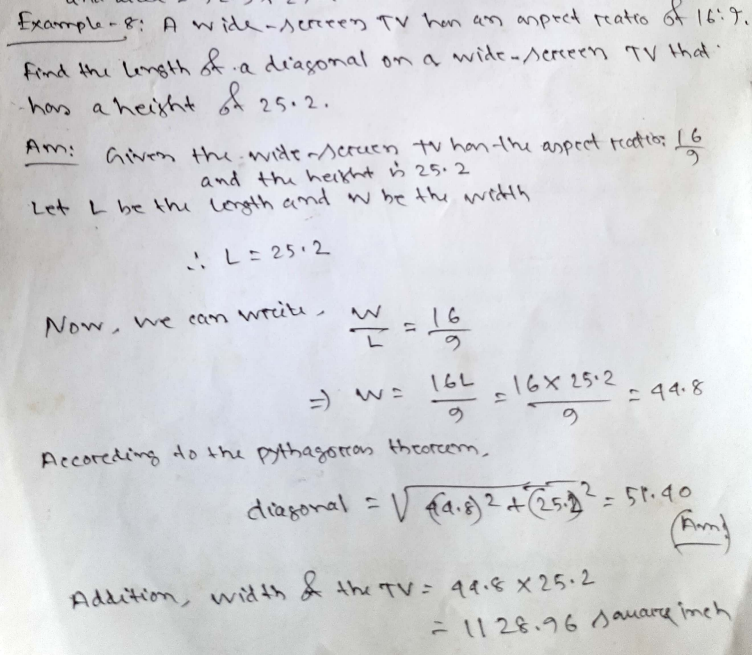 Example-8: A wide-screen TV has an aspect ratio of 16:9.
Find the length of a diagonal on a wide-screen TV that
has a height of 25.2.
Ans: Given the wide-screen tv has the aspect ratio: 16/9
and the height is 25.2
Let L be the length and w be the width
∴ L = 25.2
Now, we can write, W/L = 16/9
⇒ W = 16L/9 = 16×25.2/9 = 44.8
According to the pythagorean theorem,
diagonal = √((44.8)² + (25.2)²) = 51.40
(Ans)
Addition, width & the TV = 44.8 × 25.2
= 1128.96 square inch